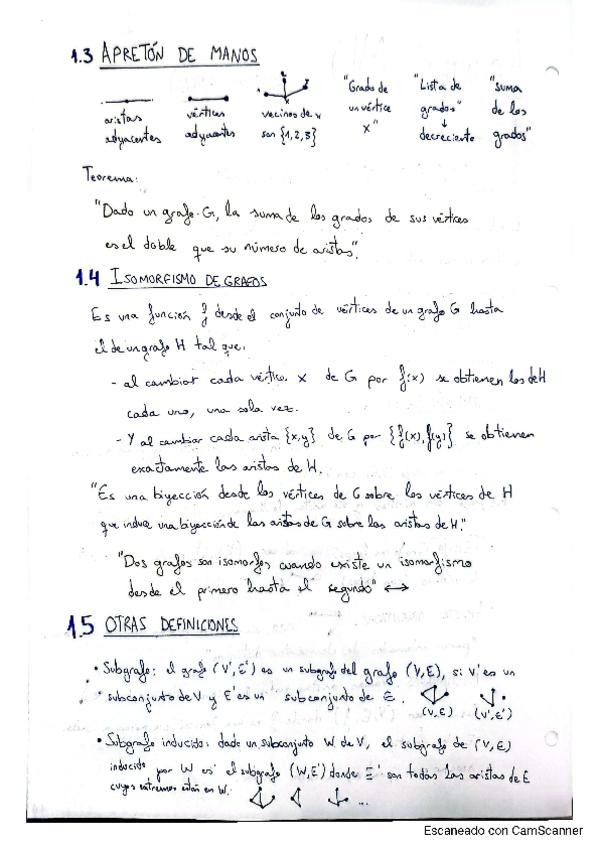 1.3 APRETÓN DE MANOS
aristas adyacentes
vértices adyacentes
vecinos de x son {1,2,3}
"Grado de un vértice x"
"Lista de grados" ↓ decreciente
"suma de los grados"
Teorema:
"Dado un grafo G, la suma de los grados de sus vértices
es el doble que su número de aristas".
1.4 ISOMORFISMO DE GRAFOS
Es una función f desde el conjunto de vértices de un grafo G hasta
el de un grafo H tal que:
- al cambiar cada vértice x de G por f(x) se obtienen los de H
cada uno, una sola vez.
- Y al cambiar cada arista {x,y} de G por {f(x), f(y)} se obtienen
exactamente las aristas de H.
"Es una biyección desde los vértices de G sobre los vértices de H
que induce una biyección de las aristas de G sobre las aristas de H."
"Dos grafos son isomorfos cuando existe un isomorfismo
desde el primero hasta el segundo" ↔
1.5 OTRAS DEFINICIONES
• Subgrafo: el grafo (V',E') es un subgrafo del grafo (V,E), si V' es un
subconjunto de V y E' es un subconjunto de E.
(V,E) (V',E')
• Subgrafo inducido: dado un subconjunto W de V, el subgrafo de (V,E)
inducido por W es el subgrafo (W,E') donde E' son todas las aristas de E
cuyos extremos están en W.
...
Escaneado con CamScanner